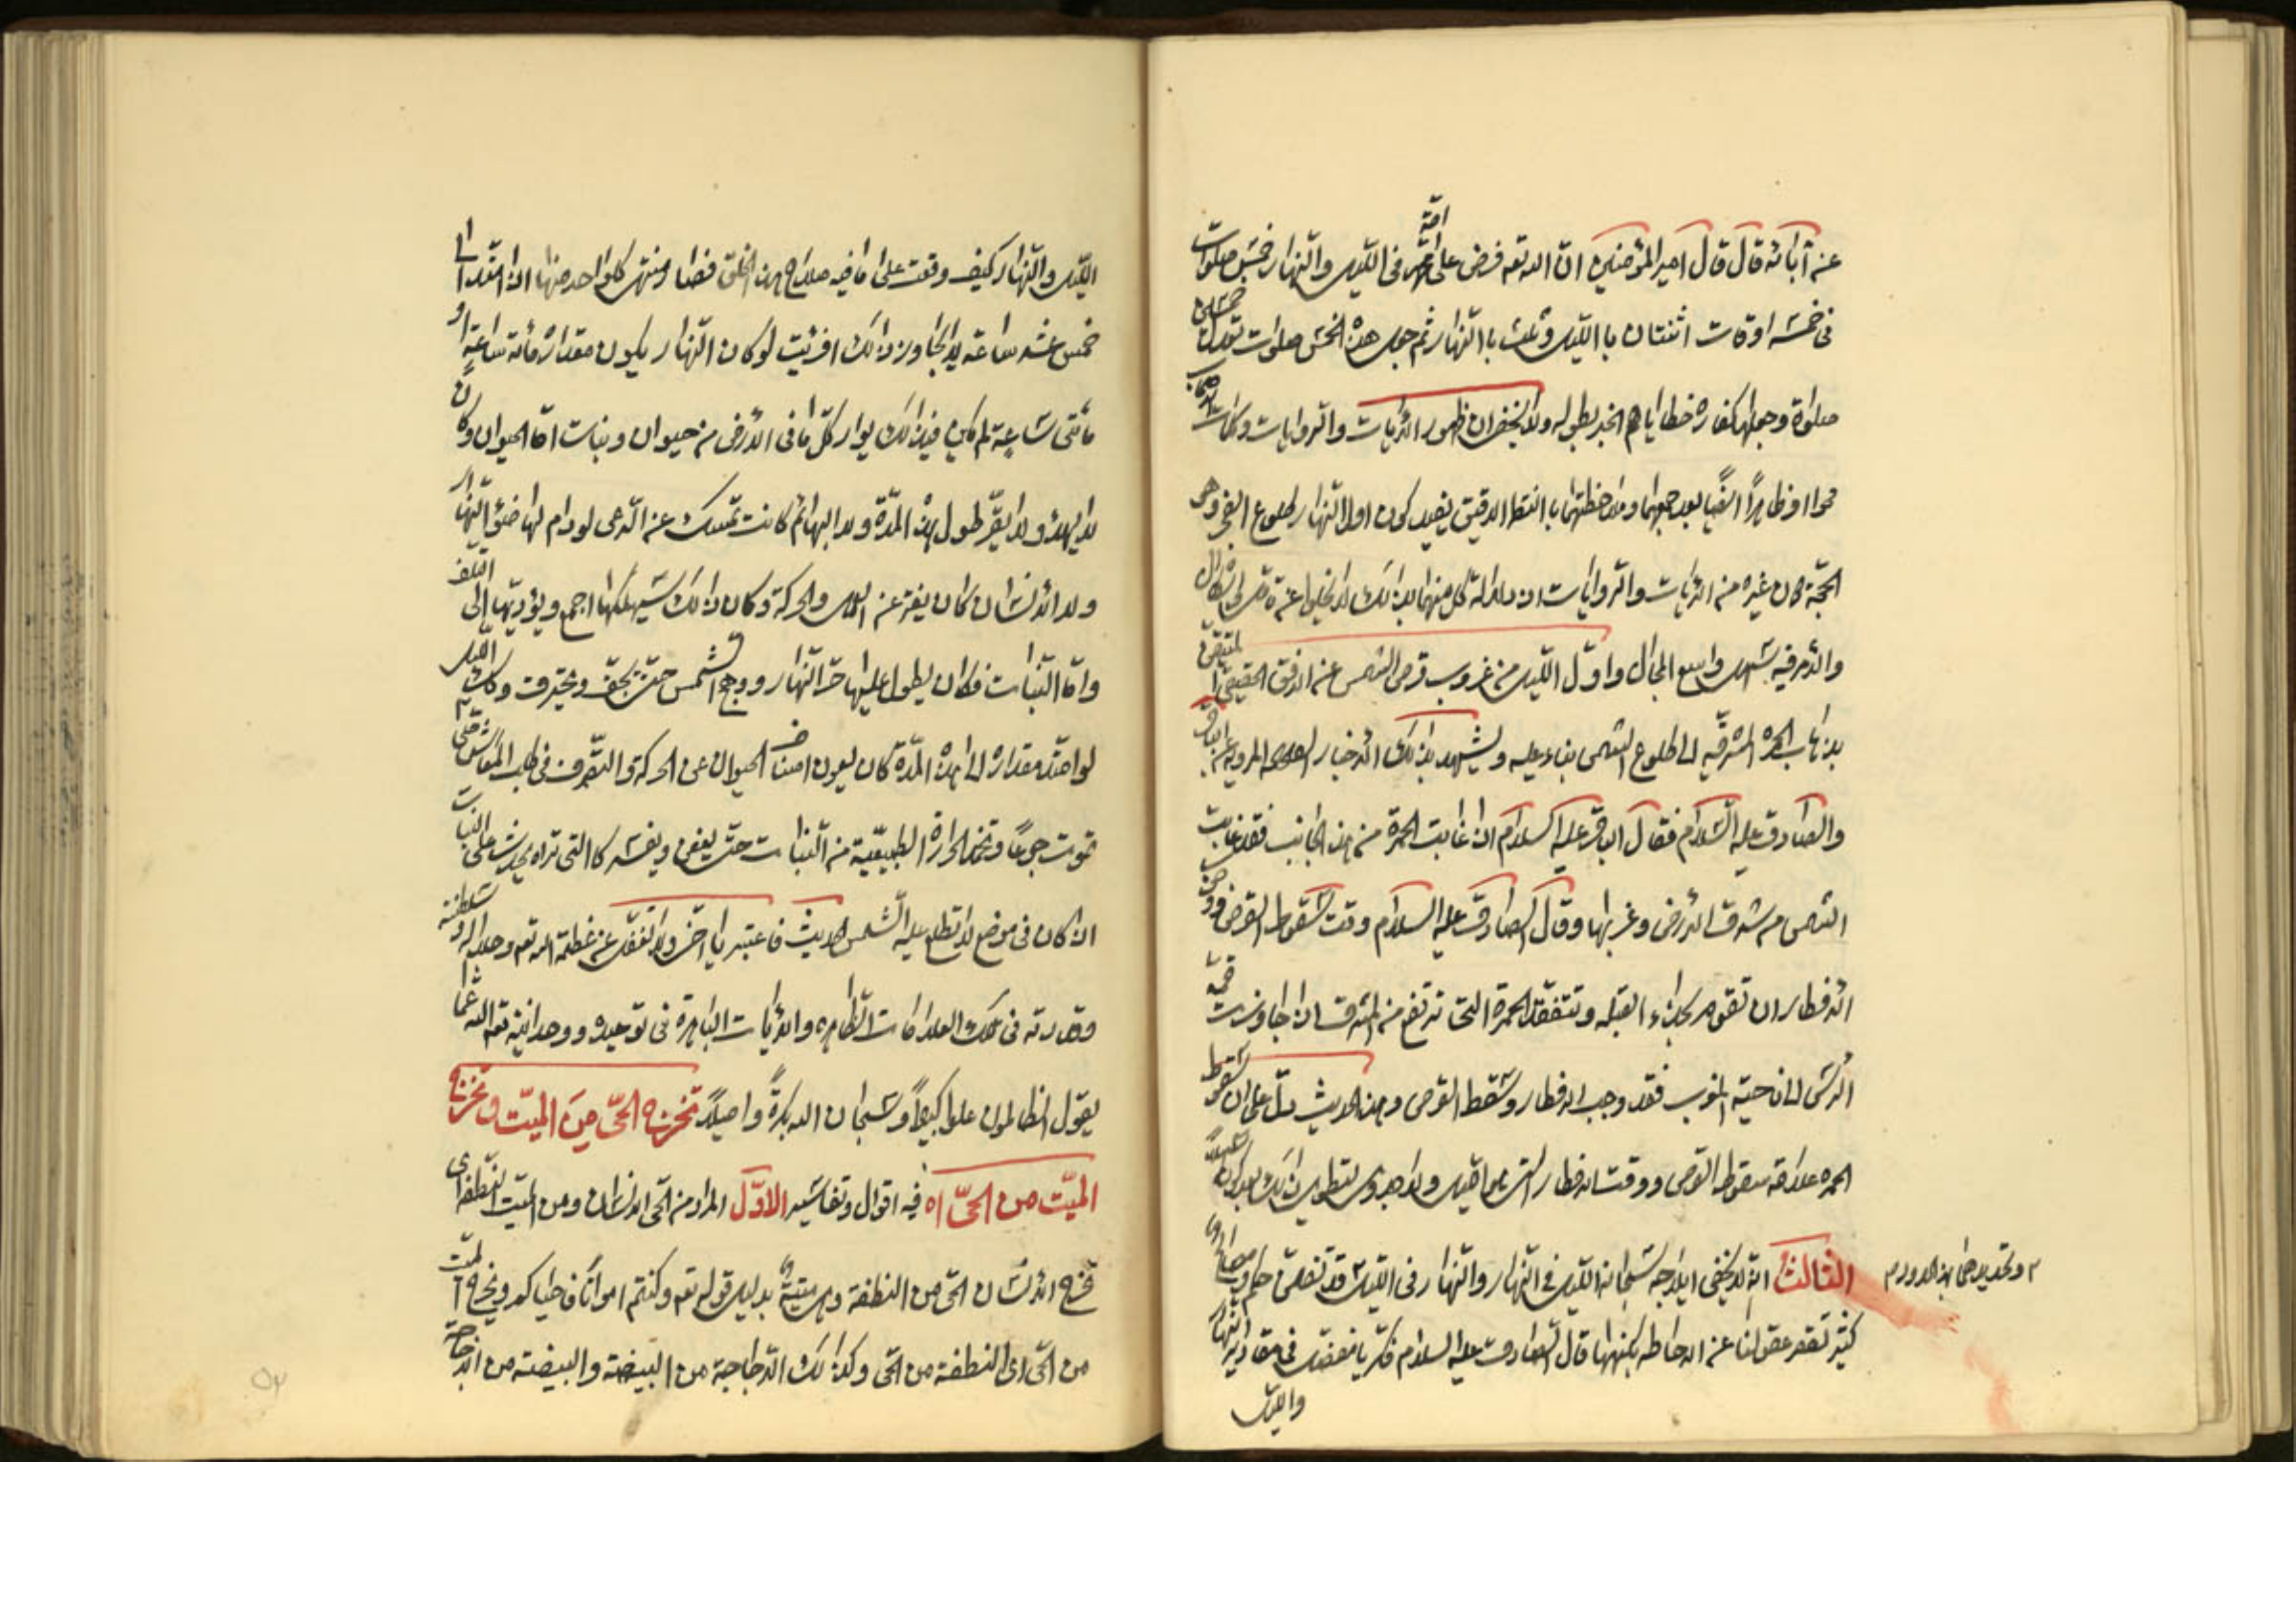 عنه آبائه قال قال امير المؤمنين ان الله تعه فرض على امته فى الليل والنهار خمس صلوات
فى خمسة اوقات اثنتان بالليل وثلث بالنهار ثم جعل هذه الخمس صلوات تعدل خمسين
صلوة وجعلها كفاره خطاياهم الخبر بطوله ولا يخفى ان ظهور الايات والروايات وكلمات الاصحاب
بعد جمعها وملاحظتها بالنظر الدقيق يفيد كون اول النهار طلوع الفجر وهى
الحجة من غيره من الايات والروايات اذ دلالة كل منهما بذلك لا يخلوا عن
والامر فيه سهل واسع المجال واول الليل من غروب قرص الشمس عن الافق الحقيقى
بذهاب الحمرة المشرقيه الى طلوع الشمس بناء عليه ويشهد بذلك الاخبار المرويه عن الباقر
والصادق عليه السلام فقال الباقر عليه السلام اذا غابت الحمرة من هذا الجانب فقد غابت
الشمس من شرق الارض وغربها وقال الصادق عليه السلام وقت سقوط القرص ووجوب
الافطار ان تقوم بحذاء القبله وتتفقد الحمرة التى ترتفع من المشرق اذا جاوزت قمة
الرأس الى ناحية المغرب فقد وجب الافطار وسقط القرص وهذا الحديث يدل على ان سقوط
الحمره علامة سقوط القرص ووقت الافطار
الثالث انه لا يخفى ايلاجه سبحانه الليل فى النهار والنهار فى الليل قد تضمن حكم ومصالح
كثير تقصر عقولنا عن الاحاطه بكنهها قال الصادق عليه السلام فكر يا مفضل فى مقادير النهار
والليل
الليل والنهار كيف وقعت على ما فيه صلاح هذا الخلق فصار منتهى كل واحد منهما اذا امتد الى
خمس عشر ساعة لا يجاوز ذلك افرأيت لو كان النهار يكون مقداره مأة ساعة او
مأتى ساعة الم يكن فى ذلك بوار كل ما فى الارض من حيوان ونبات اما الحيوان فكان
لا يهدؤ ولا يقر طول هذه المدة ولا البهائم كانت تمسك عن الرعى لو دام لها ضوء النهار
ولا الانسان كان يفتر عن العمل والحركة وكان ذلك سيهلكها اجمع ويؤديها الى التلف
واما النبات فكان يطول عليها حر النهار ووهج الشمس حتى يجف ويحترق وكذلك الليل
لو امتد مقداره الى هذه المدة كان يعوق اصناف الحيوان عن الحركة والتصرف فى طلب المعاش حتى
تموت جوعا وتخمد الحرارة الطبيعية من النبات حتى يعفن ويفسد كالتى تراه يحدث على النبات
اذا كان فى موضع لا تطلع عليه الشمس الحديث فاعتبر يا اخى ولا تغفل عن عظمة الله تعه وجلاله وسلطنته
وقدرته فى تلك العلامات الظاهره والايات الباهرة فى توحيده ووحدانيته تعالى الله عما
يقول الظالمون علوا كبيرا وسبحان الله بكرة واصيلا تخرج الحى من الميت وتخرج
الميت من الحى اه فيه اقوال وتفاسير الاول المراد من الحى الانسان ومن الميت النطفة اى
تخرج الانسان الحى من النطفة وهى ميتة بدليل قوله تعه وكنتم امواتا فاحياكم ويخرج الميت
من الحى اى النطفة من الحى وكذلك الدجاجة من البيضة والبيضة من الدجاجة